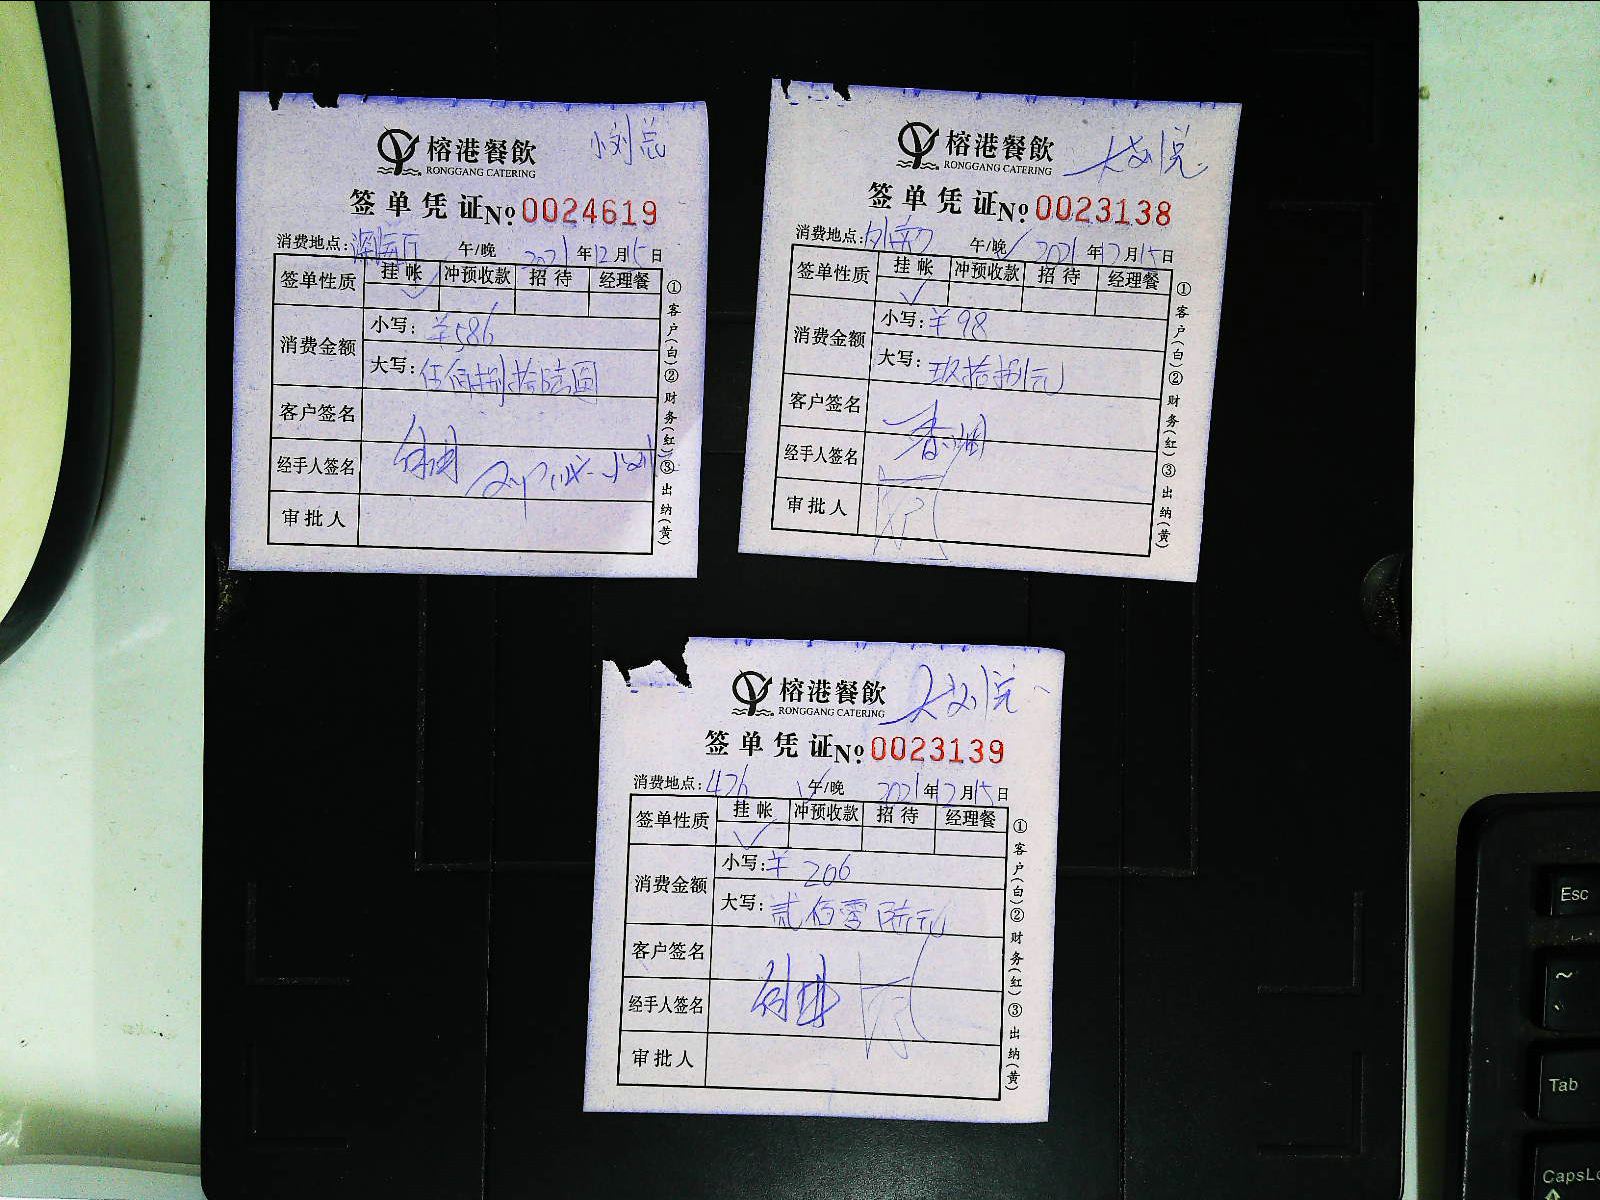 小刘总
榕港餐飲
RONGGANG CATERING
签单凭证 No 0024619
消费地点: 午/晚 2021年12月15日
签单性质 挂帐 冲预收款 招待 经理餐
✓
消费金额 小写: ¥586
大写: 伍佰捌拾陆圆
客户签名
经手人签名
审批人
①客户(白)②财务(红)③出纳(黄)
大刘总
榕港餐飲
RONGGANG CATERING
签单凭证 No 0023138
消费地点: 午/晚✓ 2021年12月15日
签单性质 挂帐 冲预收款 招待 经理餐
✓
消费金额 小写: ¥98
大写: 玖拾捌元
客户签名
经手人签名
审批人
①客户(白)②财务(红)③出纳(黄)
大刘总
榕港餐飲
RONGGANG CATERING
签单凭证 No 0023139
消费地点: 426 ✓午/晚 2021年12月15日
签单性质 挂帐 冲预收款 招待 经理餐
✓
消费金额 小写: ¥206
大写: 贰佰零陆元
客户签名
经手人签名
审批人
①客户(白)②财务(红)③出纳(黄)
Esc
~
Tab
CapsLo